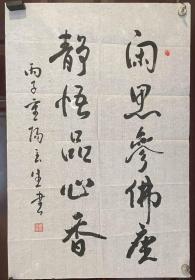 闲思参佛座
静悟品心香
丙子重阳玄生书